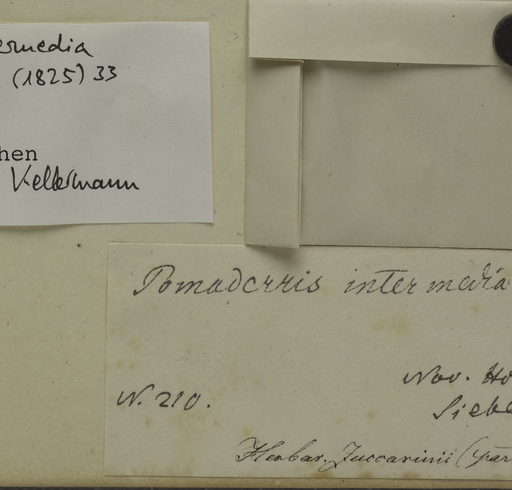 ermedia
(1825) 33
hen
Kellermann
Pomaderris intermedia
Nov. Ho
N. 210.
Siebe
Herbar. Zuccarinii (par